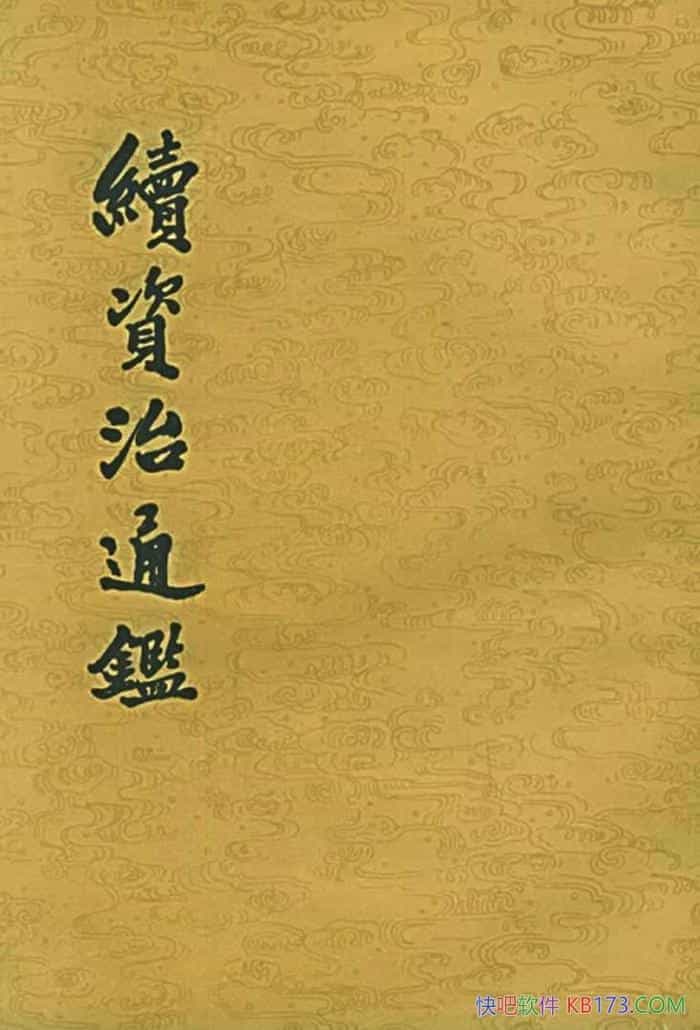 續資治通鑑
快吧软件 KB173.COM